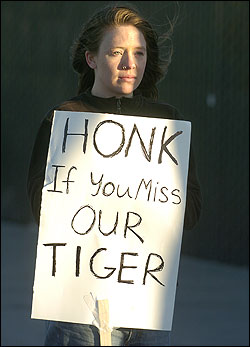 HONK
If You Miss
OUR
TIGER